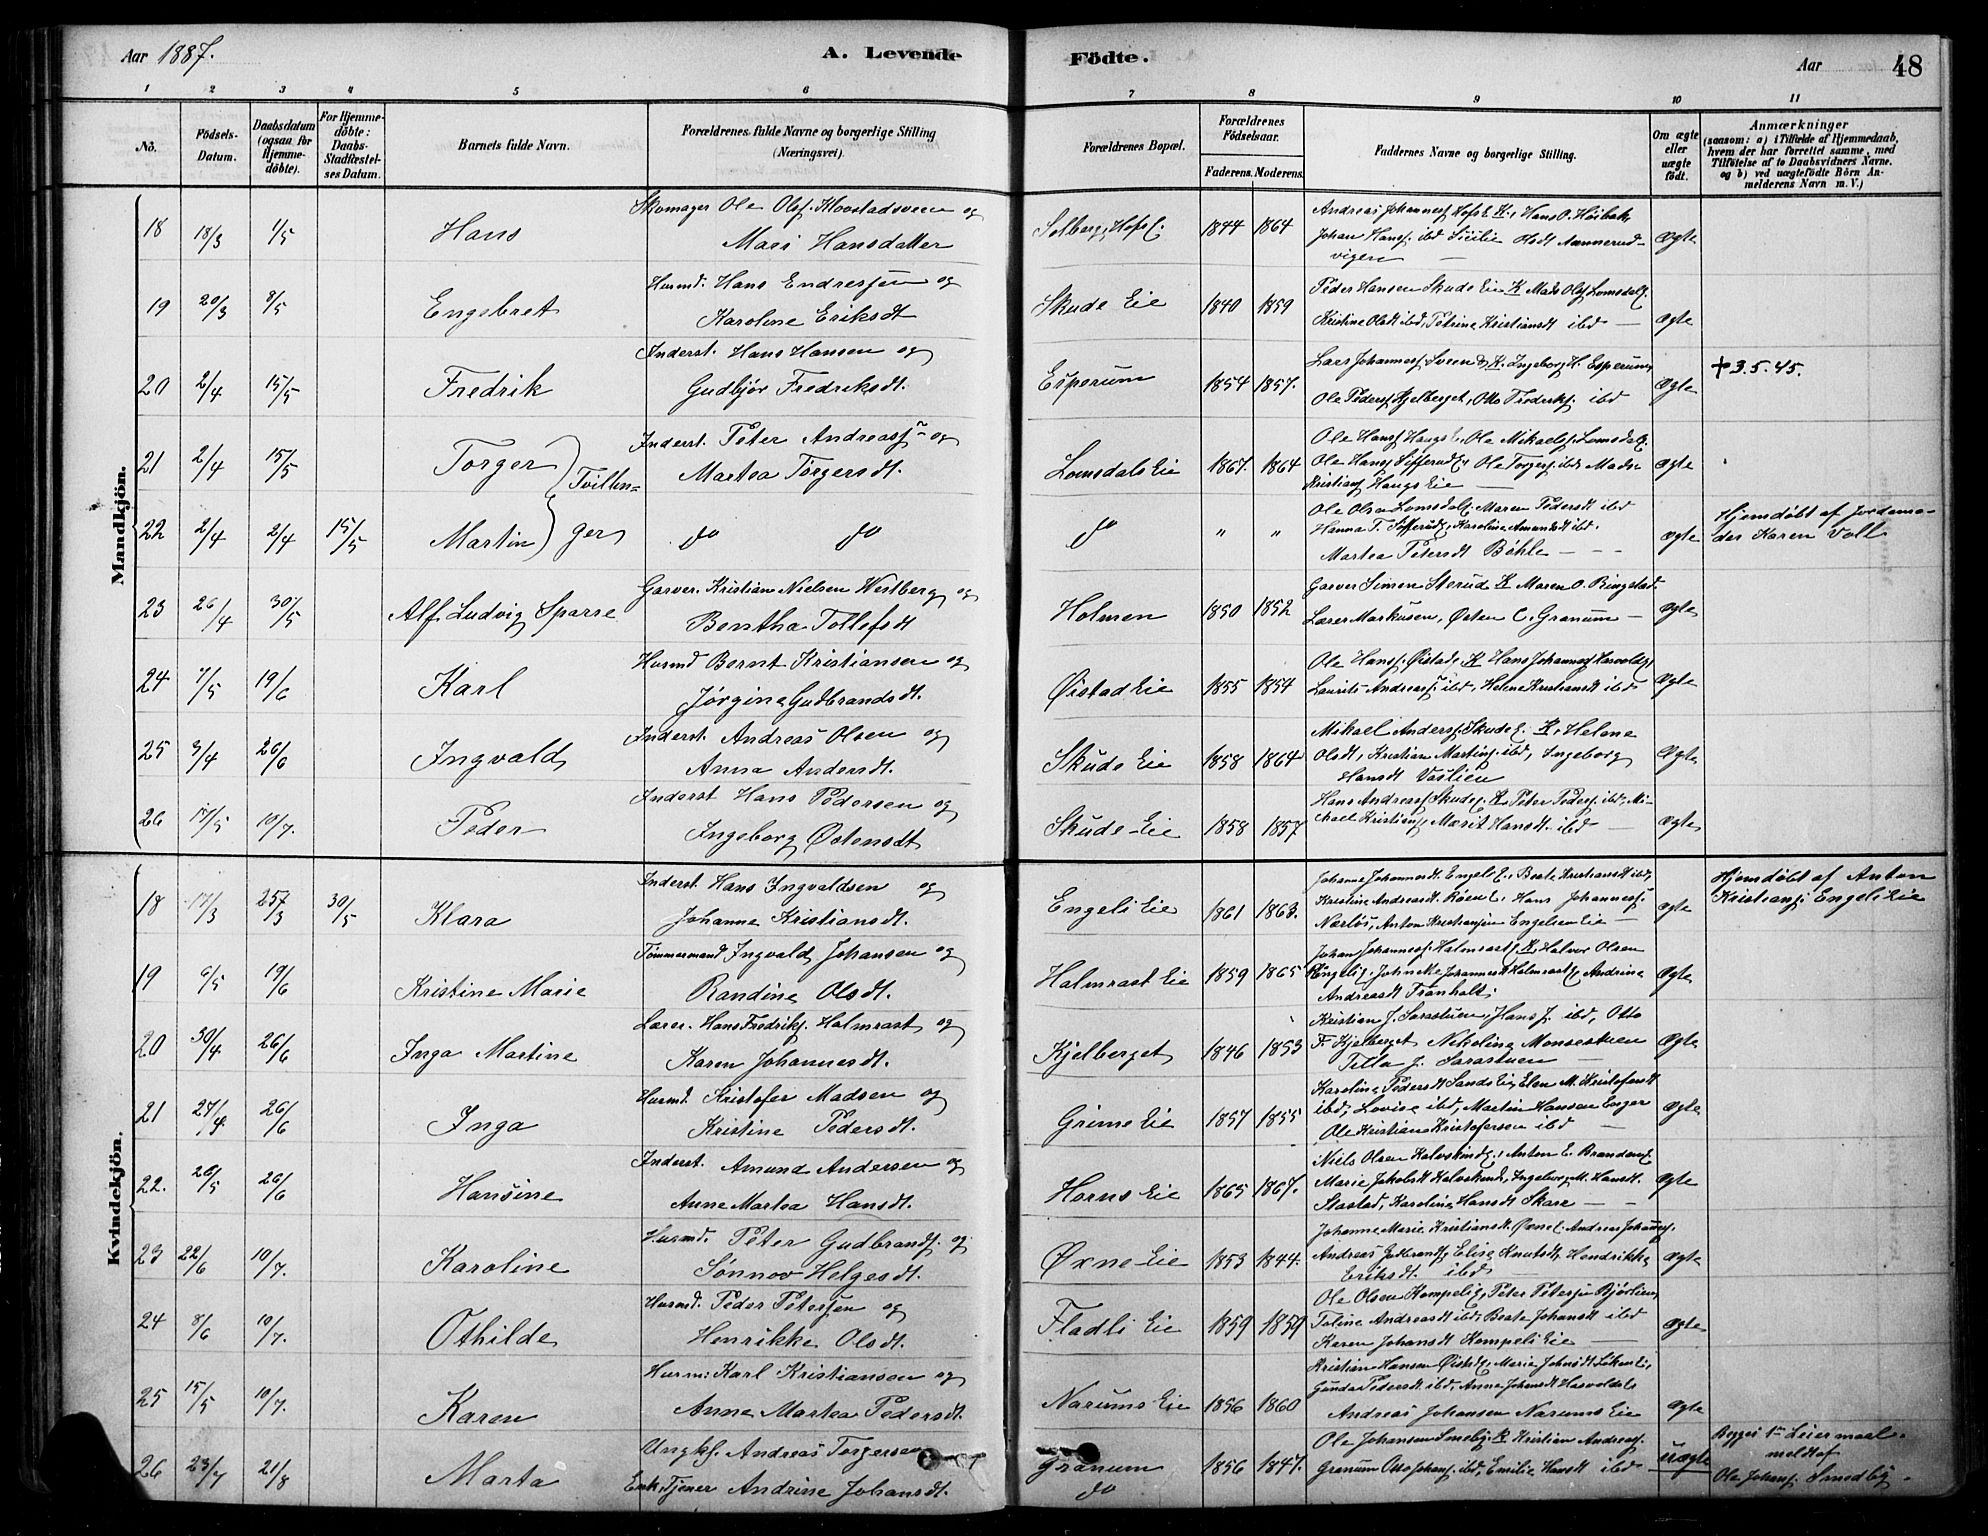 Aar 1887.
A. Levende
Födte.
Aar
48
1 2 3 4 5 6 7 8 9 10 11
No.
Födsels-Datum.
Daabsdatum (ogsaa for Hjemme-döbte).
For Hjemme-döbte: Daabs-Stadfæstel-ses Datum.
Barnets fulde Navn.
Forældrenes fulde Navne og borgerlige Stilling (Næringsvei).
Forældrenes Bopæl.
Forældrenes Födselsaar.
Faderens. Moderens.
Faddernes Navne og borgerlige Stilling.
Om ægte eller uægte födt.
Anmærkninger
(saasom: a) i Tilfælde af Hjemmedaab, hvem der har forrettet samme, med Tilföielse af to Daabsvidners Navne. og b) ved uægtefödte Börn Anmelderens Navn m. V.)
Mandkjön.
18 18/3 1/5 Hans
Skomager Ole Olsf. Klovstadsveen og
Mari Hansdatter
Solberg, Hofs E. 1844 1864
Andreas Johannesf. Hofs E. K., Hans O. Høibak,
Johan Hansf. ibd Sicilie Olsdt Aannerud-
vigen
ægte
19 20/3 8/5 Engebret
Husmd. Hans Endresen og
Karoline Eriksdt
Skude Eie 1840 1859
Peder Hansen Skude Eie K Mads Olsf Lomsdal E.
Kristine Olsdt ibd, Petrine Kristiansdt ibd
ægte
20 2/4 15/5 Fredrik
Inderst. Hans Hansen og
Gudbjør Fredriksdt.
Esperum 1854 1857.
Lars Johannesf. Sveen & K. Ingeborg H. Esperum,
Ole Pedersf Kjelberget, Otto Frederiksf. ibd
ægte
+ 3.5.45.
21 2/4 15/5 Torger
Inderst. Peter Andreasf og
Martea Torgersdt.
Tvillin=
Lomsdals Eie 1867. 1864
Ole Hansf Haugs E., Ole Mikaelsf. Lomsdal E.
Ole Hansf Sifferud E., Ole Torgersf. ibd, Mads
Kristiansf Haugs Eie
ægte
22 2/4 2/4 15/5 Martin ger
do do
do " "
Ole Olsen Lomsdal E., Maren Pedersdt ibd
Hanna T. Sifferud E., Karoline Amundsdt ibd.
Martea Petersdt Bøhle
ægte
Hjemdöbt af Jordemo-
der Karen Voll
23 26/4 30/5 Alf Ludvig Sparre
Garver. Kristian Nielsen Westberg og
Bentha Tollefsdt
Holmen 1850 1852
Garver Simen Sterud K Maren O. Ringstad.
Lærer Markusen, Østen C. Granum
ægte
24 7/5 19/6 Karl
Husmd Bernt Kristiansen og
Jörgine Gudbrandsdt.
Øistad Eie 1855 1854
Ole Hansf. Øistad, K Hans Johannesf Hasvold E,
Laurits Andreasf. ibd, Helene Kristiansdt ibd
ægte
25 3/4 26/6 Ingvald
Inderst. Andreas Olsen og
Anna Andersdt.
Skude Eie 1858 1864
Mikael Andersf. Skude E. K, Helene
Olsdt, Kristian Martinsf. ibd, Ingeborg
Hansdt Vaslien
Ægte
26 17/5 10/7. Peder
Inderst Hans Pedersen og
Ingeborg Østensdt
Skude Eie 1858 1857
Hans Andreasf Skude E. K Peter Pedersf. ibd, Mi-
chael Kristiansf, Marit Hansdt ibd
ægte
Kvindekjön.
18 17/3 25/3 30/5 Klara
Inderst Hans Ingvaldsen og
Johanne Kristiansdt.
Engeli Eie 1861 1863.
Johanne Johannesdt. Engeli E., Beate Kristiansdt ibd,
Kristine Andreasdt. Røen E. Hans Johannesf.
Nærlös, Anton Kristiansen Engelien Eie
ægte
Hjemdöbt af Anton
Kristiansf. Engeli Eie
19 6/5 19/6 Kristine Marie
Tömmermand Ingvald Johansen og
Randine Olsdt.
Halmrast Eie 1859 1865
Johan Johannesf. Halmrast E. K Halvor Olsen
Engeli E. Johneke Johannesdt Halmrast E. Andrine
Andreasdt Franholt.
Ægte
20 30/4 26/6 Inga Martine
Lærer. Hans Fredriksf. Halmrast og
Karen Johannesdt.
Kjelberget 1846 1853
Kristian J. Sarastuen, Hans J. ibd, Otto
F. Kjelberget Nikoline Monsestuen
Tilla J. Sarastuen
Ægte
21 27/4 26/6 Inga
Husmd. Kristofer Madsen og
Kristine Pedersdt.
Grime Eie 1857 1855
Karoline Pedersdt Sands Eie, Elen M. Kristofersdt
ibd, Lovise ibd, Martin Hansen Enger
Ole Kristian Kristofersen ibd
Ægte
22. 20/5 26/6 Hansine
Inderst. Amund Andersen og
Anne Martea Hansdt.
Horns Eie 1865 1867.
Niels Olsen Kalvskind E., Anton E. Branden E.
Marie Jakobsdt Kalvskind, Ingeborg M. Hansdt.
Stastad, Karoline Hansdt Skare
Ægte
23 22/6 10/7. Karoline
Husmd. Peter Gudbrandsf. og
Sönnov Helgesdt.
Øxne Eie 1853 1844.
Johanne Marie Kristiansdt. Øxne E. Andreas Johannesf.
Andreas Gudbrandsf, Elise Knutsdt, Hendrikke
Eriksdt. ibd
ægte
24 8/6 10/7. Othilde
Husmd. Peder Petersen og
Henrikke Olsdt.
Fladli Eie 1859 1859
Ole Olsen Kompeli E, Peter Petersen Bjørlien,
Toline Andreasdt ibd, Beate Johansdt ibd
Karen Johansdt Kompeli Eie
ægte
25 15/5 10/7. Karen
Husm: Karl Kristiansen og
Anne Martea Pedersdt.
Narums Eie 1856 1860
Kristian Hansen Øistad E, Marie Johnsdt Løken E.,
Gunda Pedersdt ibd, Anne Johansdt Hasvold E.
Andreas Johansen Narums Eie
ægte
26 23/7 21/8 Marta
Ungkf. Andreas Torgersen
Enke, Tjener Andrine Johansdt.
Granum
do
1856 1847.
Ole Johansen Smeby, K Kristian Andreasf.
Granum Otto Johansf. ibd, Emilie Hansdt ibd
uægte
Begges 1ste Leiermaal.
meldt af
Ole Johansf. Smedby